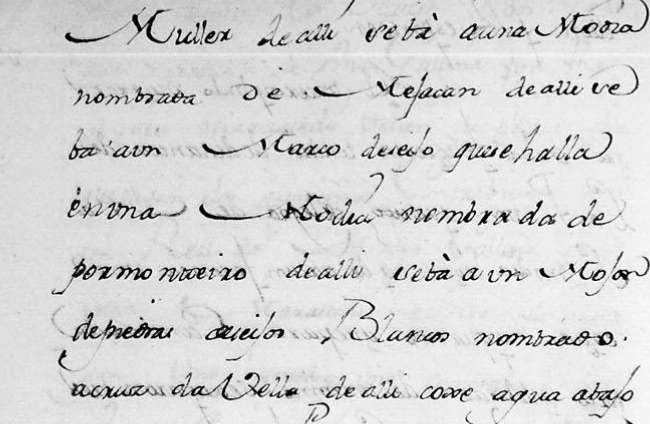 Muller de alli se bà a una Modia
nombrada de Mesacan de alli se
ba a un Marco de seijo que se halla
en una Modia nombrada de
pormonteiro de alli se bà a un
de piedras seijos Blancos nombrado
a cruz da Vella de alli corre agua abajo